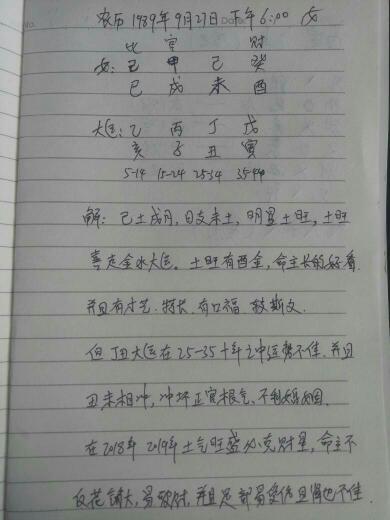 农历1989年9月27日下午6:00 女
比 官 财
女: 己 甲 己 癸
巳 戌 未 酉
大运: 乙 丙 丁 戊
亥 子 丑 寅
5-14 15-24 25-34 35-44
解: 己土戌月, 日支未土, 明显土旺, 土旺
喜走金水大运。土旺有酉金, 命主长的好看
并且有才艺、特长、有口福、较斯文.
但丁丑大运在25-35十年之中运势不佳, 并且
丑未相冲, 冲坏正官根气、不利婚姻.
在2018年 2019年土气旺盛必克财星, 命主不
仅花销大, 易破财, 并且足部易受伤且肾也不佳.